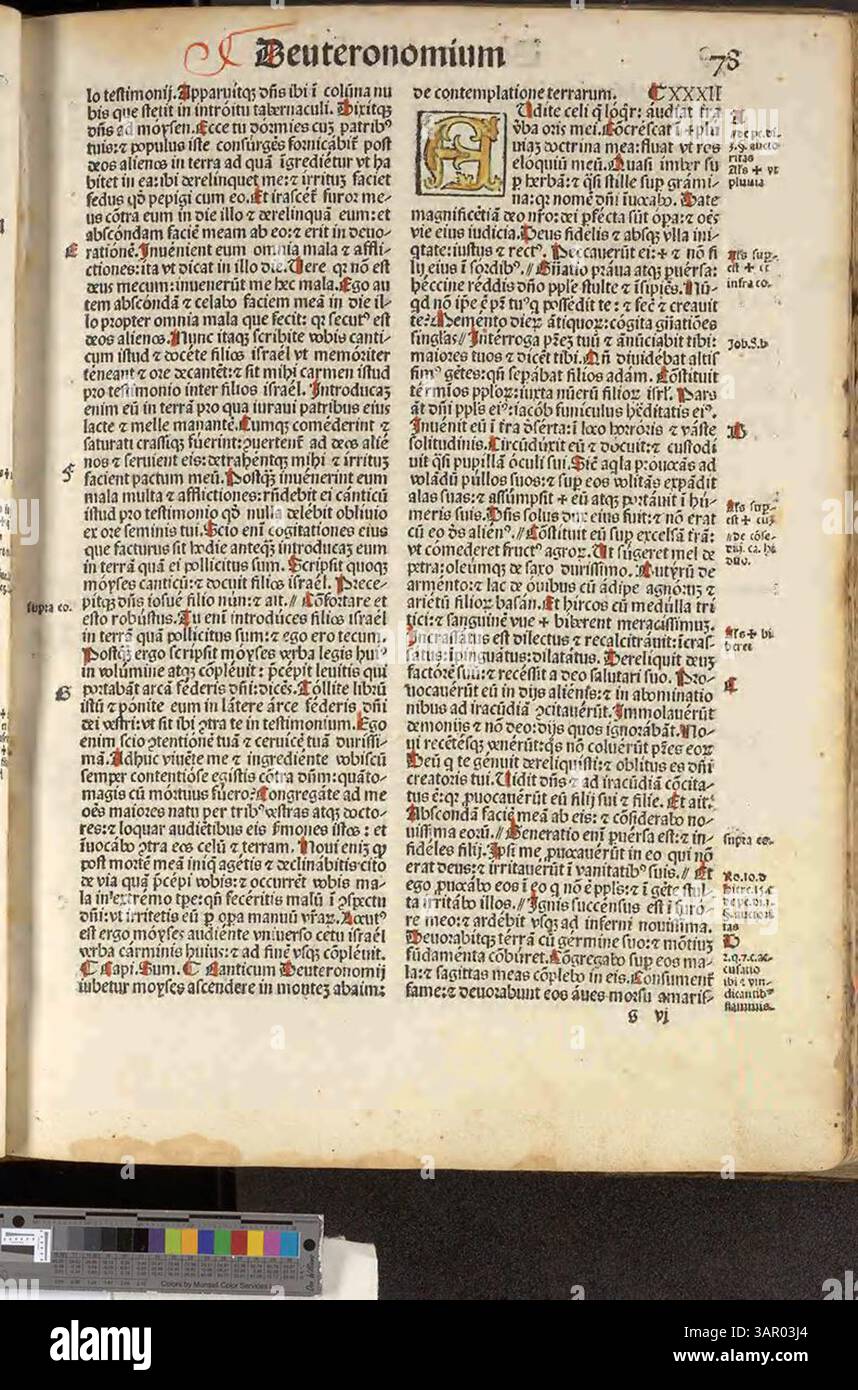 Deuteronomium
78
lo testimonij. Apparuitqꝫ dñs ibi ĩ colũna nu
bis que stetit in introitu tabernaculi. Dixitqꝫ
dñs ad moysen. Ecce tu dormies cuꝫ patribꝰ
tuis: ⁊ populus iste consurgẽs fornicabit̃ post
deos alienos in terra ad quã ĩgrediẽtur vt ha
bitet in ea: ibi derelinquet me: ⁊ irrituꝫ faciet
fedus qď pepigi cum eo. Et irascet̃ furor me-
us cõtra eum in die illo ⁊ derelinquã eum: et
abscõdam faciẽ meam ab eo: ⁊ erit in deuo-
E rationẽ. Inuenient eum omnia mala ⁊ affli-
ctiones: ita vt dicat in illo die. Uere qꝛ nõ est
deus mecum: inuenerũt me hec mala. Ego au
tem abscõdã ⁊ celabo faciem meã in die il-
lo propter omnia mala que fecit: qꝛ secutꝰ est
deos alienos. Nunc itaqꝫ scribite vobis canti-
cum istud ⁊ docete filios israel vt memoriter
teneant ⁊ ore decantẽt: ⁊ sit mihi carmen istud
pro testimonio inter filios israel. Introducaꝫ
enim eũ in terrã pro qua iuraui patribus eius
lacte ⁊ melle manantẽ. Cumqꝫ comederint ⁊
saturati crassiqꝫ fuerint: ꝯuertent̃ ad deos aliẽ
nos ⁊ seruient eis: detrahẽntqꝫ mihi ⁊ irrituꝫ
F facient pactum meũ. Postqꝫ inuenerint eum
mala multa ⁊ afflictiones: rñdebit ei cãnticũ
istud pro testimonio qď nulla delebit obliuio
ex ore seminis tui. Scio eni͂ cogitationes eius
que facturus sit hodie anteqꝫ introducaꝫ eum
in terrã quã ei pollicitus sum. Scripsit quoqꝫ
moyses canticũ: ⁊ docuit filios israel. Prece-
supra eo. pitqꝫ dñs iosue filio nun: ⁊ ait. // Cõfortare et
esto robustus. Tu eni͂ introduces filios israel
in terrã quã pollicitus sum: ⁊ ego ero tecum.
Postqꝫ ergo scripsit moyses verba legis huiꝰ
in volumine atqꝫ cõpleuit: p̃cepit leuitis qui
G portabãt arcã federis dñi: dicẽs. Tollite librũ
istũ ⁊ ponite eum in latere arce federis dñi
dei vestri: vt sit ibi ꝯtra te in testimonium. Ego
enim scio ꝯtentionẽ tuã ⁊ ceruicẽ tuã durissi-
mã. Adhuc viuẽte me ⁊ ingrediente vobiscũ
semper contentiose egistis cõtra dñm: quãto-
magis cũ mortuus fuero? Congregate ad me
oẽs maiores natu per tribꝰ vestras atqꝫ docto-
res: ⁊ loquar audiẽtibus eis sermones istos: et
ĩuocabo ꝯtra eos celũ ⁊ terram. Noui eniꝫ ꝙ
post mortẽ meã iniqꝫ agetis ⁊ declinabitis cito
de via quã p̃cepi vobis: ⁊ occurrẽt vobis ma-
la in extremo tp̃e: qñ feceritis malũ ĩ ꝯspectu
dñi: vt irritetis eũ ꝑ opa manuũ vr̃aꝝ. Locutꝰ
est ergo moyses audiente vniuerso cetu israel
verba carminis huius: ⁊ ad finẽ vsqꝫ cõpleuit.
¶ Capi. Sum. ¶ Canticum Deuteronomij
iubetur moyses ascendere in monteꝫ abaim:
de contemplatione terrarum. ¶ XXXII
Audite celi q̃ loq̃r: audiat t̃ra
v̓ba oris mei. Cõcrescat ĩ + plu
uiaꝫ doctrina mea: fluat vt ros
eloquiũ meũ. Quasi imber su
ꝑ herbã: ⁊ q̃si stille suꝑ grami-
na: qꝛ nomẽ dñi ĩuocabo. Date
magnificẽtiã deo nr̃o: dei ꝑfecta sũt oꝑa: ⁊ oẽs
vie eius iudicia. Deus fidelis ⁊ absqꝫ vlla ini-
qtate: iustus ⁊ rectꝰ. Peccauerũt ei: + ⁊ nõ fi
lij eius ĩ sordibꝰ. // Gñatio praua atqꝫ ꝑuersa:
heccine reddis dño pple stulte ⁊ ĩsipiẽs. Nũ-
qd nõ ip̃e ẽ p̃r tuꝰ q possedit te: ⁊ fec̃ ⁊ creauit
te? Memẽto dieꝝ ãtiquoꝝ: cogita gñatiões
singlas // Interroga p̃reꝫ tuũ ⁊ ãnũciabit tibi:
maiores tuos ⁊ dicẽt tibi. Qñ diuidebat altis
simꝰ gẽtes: qñ sepabat filios adam. Cõstituit
t̓mĩos pploꝝ: iuxta nũerũ filioꝝ isrl̃. Pars
aũt dñi ppls eiꝰ: iacob funiculus hẽditatis eiꝰ.
Inuẽit eũ ĩ t̃ra dserta: ĩ loco horroris ⁊ vaste
solitudinis. Circũduxit eũ ⁊ docuit: ⁊ custodi
uit q̃si pupillã oculi sui. Sic̃ aqla ꝓuocãs ad
volãdũ pullos suos: ⁊ suꝑ eos volitãs expãdit
alas suas: ⁊ assũpsit + eũ atqꝫ portauit ĩ hu-
meris suis. Dñs solus dux eius fuit: ⁊ nõ erat
cũ eo ds̃ alienꝰ. // Cõstituit eũ suꝑ excelsã t̃rã:
vt comederet fructꝰ agroꝝ. Ut sugeret mel de
petra: oleumqꝫ de saxo durissimo. Butyrũ de
armẽto: ⁊ lac de ouibus cũ adipe agnorũ: ⁊
arietũ filioꝝ basan. Et hircos cũ medulla tri
tici: ⁊ sanguinẽ vue + biberent meracissimuꝫ.
Incrassatus est dilectus ⁊ recalcitrauit: ĩcras-
satus: ĩpinguatus: dilatatus. Dereliquit deuꝫ
factorẽ suũ: ⁊ recessit a deo salutari suo. Pro-
uocauerũt eũ in dijs alienis: ⁊ in abominatio
nibus ad iracũdiã ꝯcitauerũt. Immolauerũt
demonijs ⁊ nõ deo: dijs quos ignorabãt. No-
ui recẽtesqꝫ venerũt: qs̃ nõ coluerũt p̃res eoꝝ
Deũ q te genuit dereliquisti: ⁊ oblitus es dñi
creatoris tui. Uidit dñs ⁊ ad iracũdiã cõcita-
tus ẽ: qꝛ ꝓuocauerũt eũ filij sui ⁊ filie. Et ait.
Abscondã faciẽ meã ab eis: ⁊ cõsiderabo no-
uissima eorũ. // Generatio eni͂ ꝑuersa est: ⁊ in-
fideles filij. Ipsi me ꝓuocauerũt in eo qui nõ
erat deus: ⁊ irritauerũt ĩ vanitatibꝰ suis. // Et
ego ꝓuocabo eos ĩ eo q nõ ẽ ppls: ⁊ ĩ gẽte stul
ta irritabo illos. // Ignis succensus est ĩ furo-
re meo: ⁊ ardebit vsqꝫ ad inferni nouissima.
Deuorabitqꝫ terrã cũ germine suo: ⁊ mõtiuꝫ
fũdamẽta cõburet. Cõgregabo suꝑ eos ma-
la: ⁊ sagittas meas cõplebo in eis. Consument̃
fame: ⁊ deuorabunt eos aues morsu amaris-
g vj
A
pluuia
Als̃ sup.
est + et
infra eo.
Job.8.b
B
Als̃ sup-
est + cuꝫ
Als̃ + bi
beret
C
supra eo.
Ro.10.d
D
Colors by Munsell Color Services
alamy
Image ID: 3AR03J4
www.alamy.com